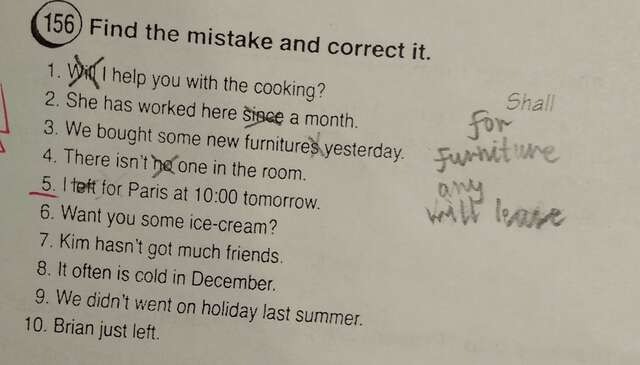 156 Find the mistake and correct it.
1. Will I help you with the cooking?
Shall
2. She has worked here since a month.
for
3. We bought some new furnitures yesterday.
furniture
4. There isn't no one in the room.
any
5. I left for Paris at 10:00 tomorrow.
will leave
6. Want you some ice-cream?
7. Kim hasn't got much friends.
8. It often is cold in December.
9. We didn't went on holiday last summer.
10. Brian just left.